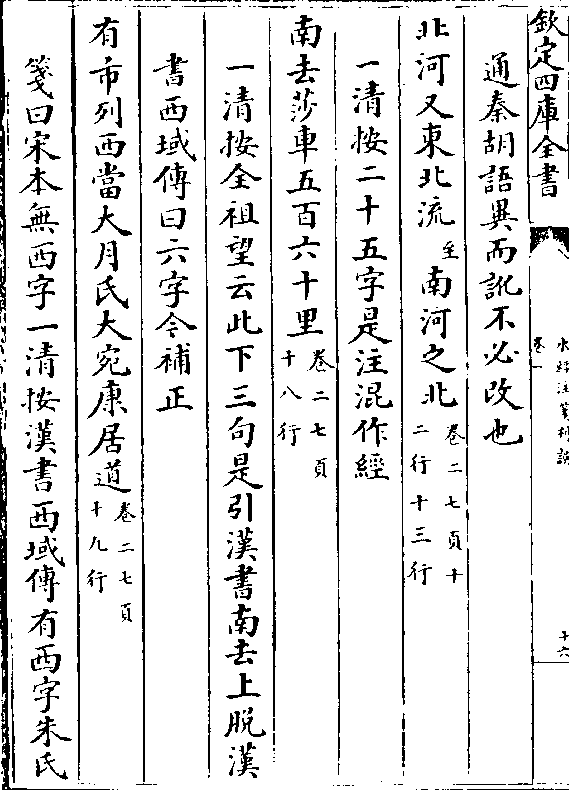 欽定四庫全書
水經注箋刊誤
卷一
十六
通秦胡語異而訛不必改也
北河又東北流至南河之北卷二七頁十二行十三行
一清按二十五字是注混作經
南去莎車五百六十里卷二七頁十八行
一清按全祖望云此下三句是引漢書南去上脫漢
書西域傳曰六字今補正
有市列西當大月氏大宛康居道卷二七頁十九行
箋曰宋本無西字一清按漢書西域傳有西字朱氏